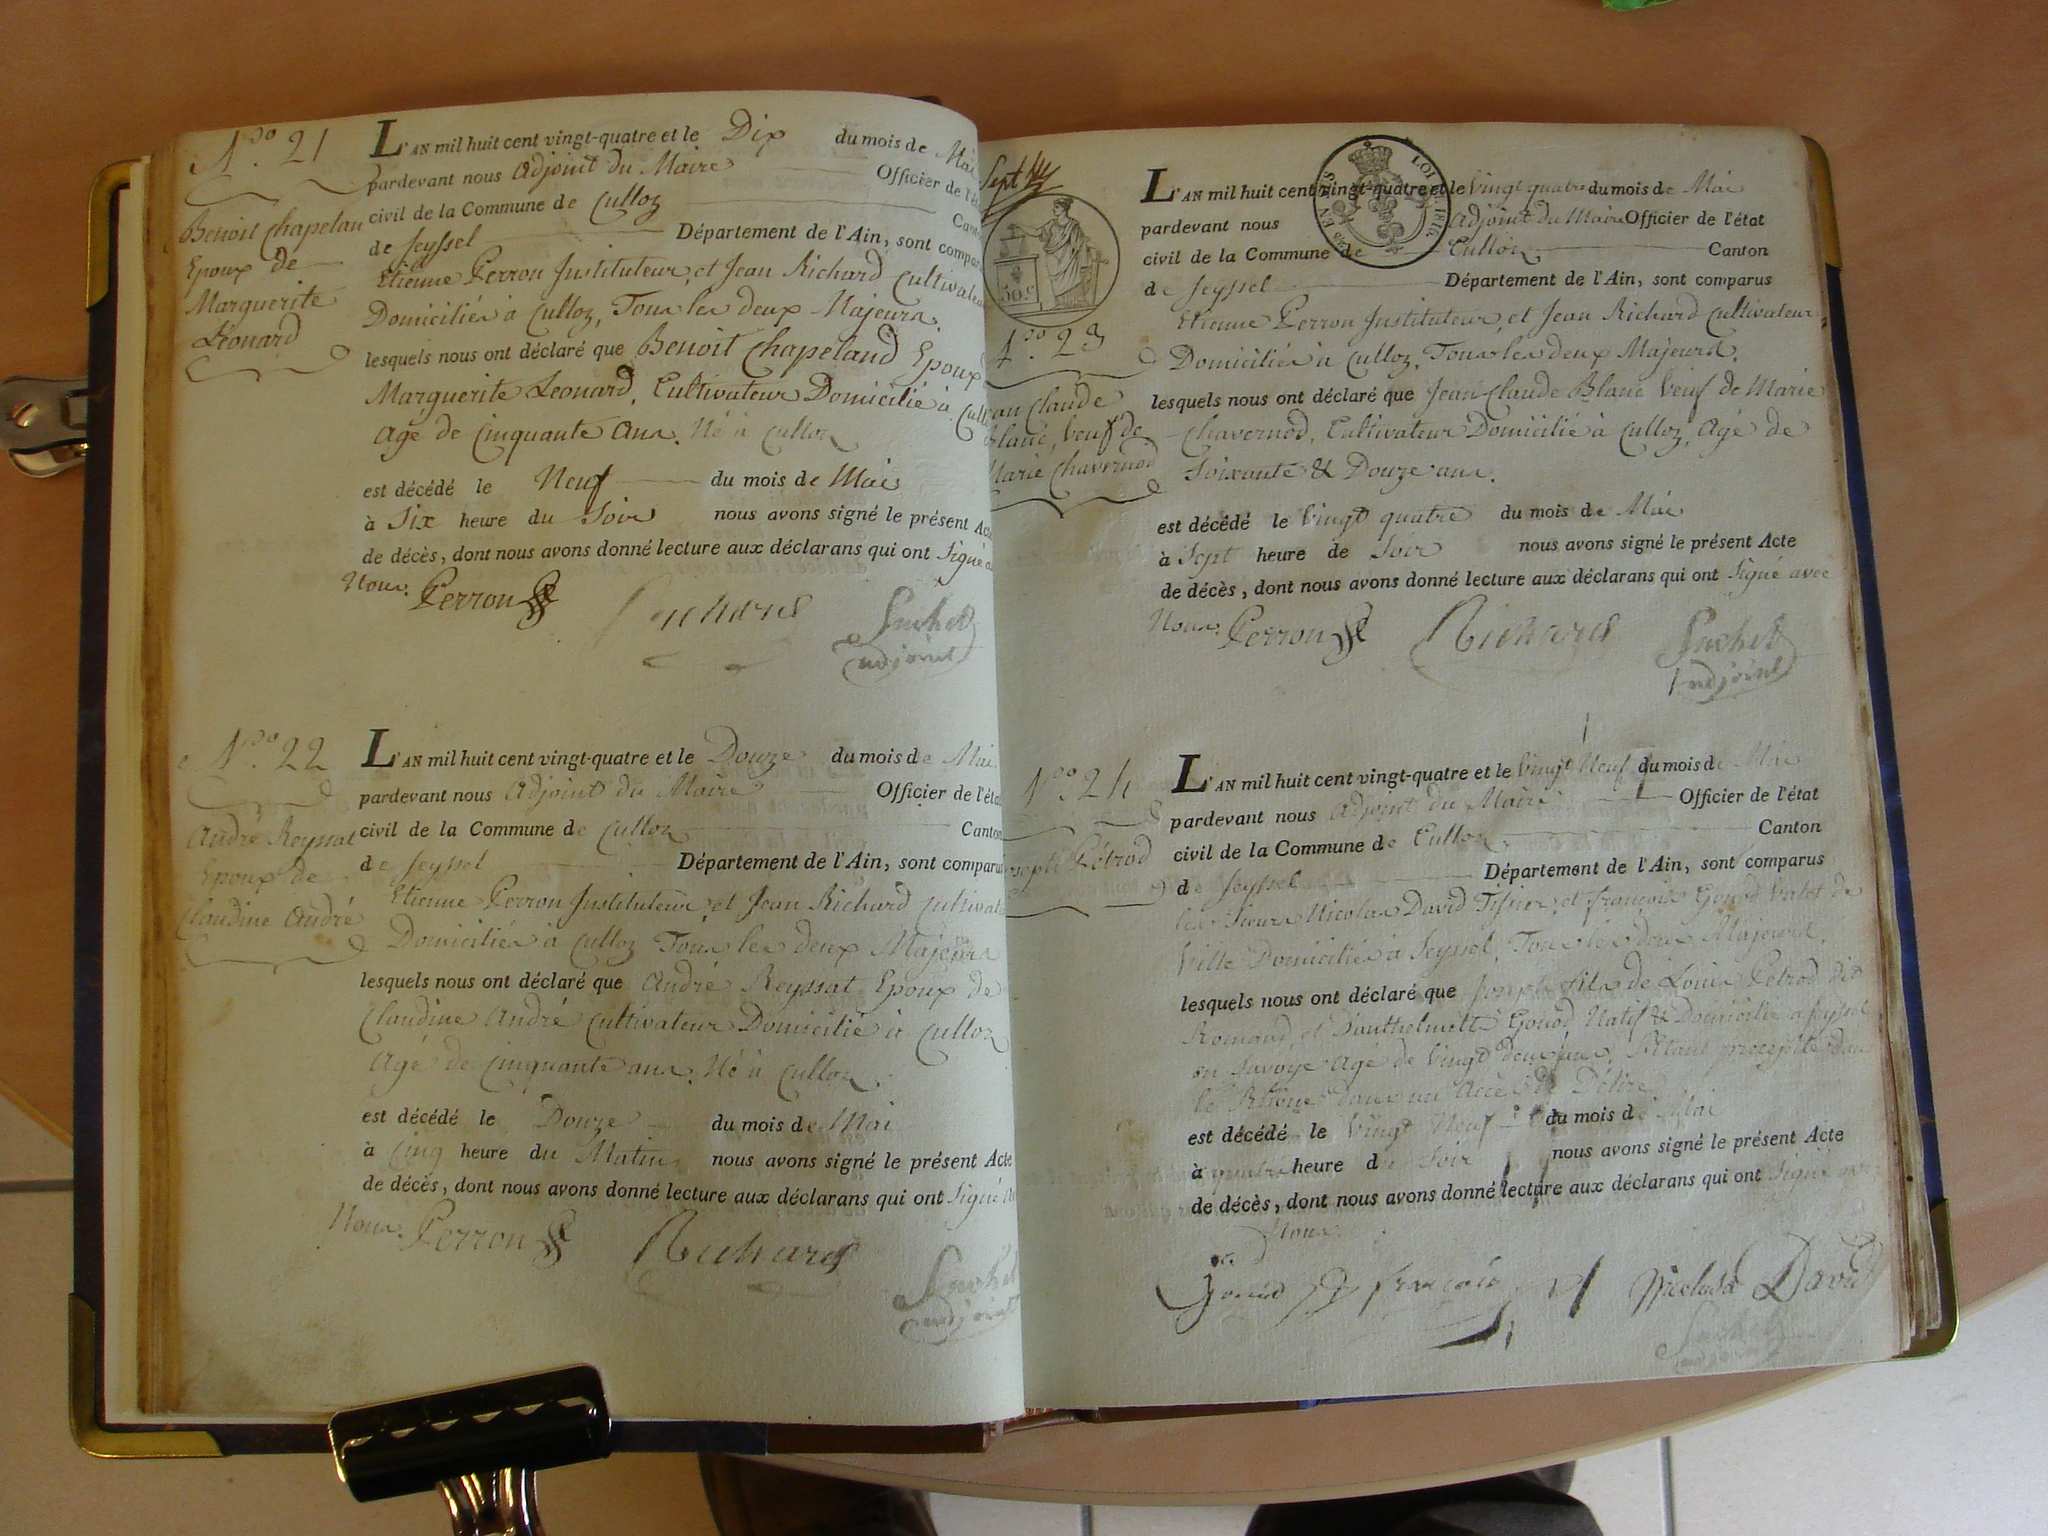 N.ro 21
Benoit Chapelan
Epoux de
Marguerite
Léonard
L'AN mil huit cent vingt-quatre et le Dix du mois de Mai
pardevant nous Adjoint du Maire Officier de l'ét
civil de la Commune de Culloz Cant
de Seyssel Département de l'Ain, sont compar
Etienne Perron Instituteur, et Jean Richard Cultivateu
Domiciliés à Culloz, Tous les deux Majeurs.
lesquels nous ont déclaré que Benoit Chapeland Epoux
Marguerite Leonard, Cultivateur Domicilié à Cull
Agé de Cinquante Ans. Né à Culloz
est décédé le Neuf du mois de Mai
à Six heure du Soir nous avons signé le présent Ac
de décès, dont nous avons donné lecture aux déclarans qui ont Signé a
Nous. Perron Richard Suchet
adjoint
N.ro 22
André Reyssat
Epoux de
Claudine André
L'AN mil huit cent vingt-quatre et le Douze du mois de Mai
pardevant nous Adjoint du Maire Officier de l'état
civil de la Commune de Culloz Canton
de Seyssel Département de l'Ain, sont comparus
Etienne Perron Instituteur, et Jean Richard Cultivat
Domiciliés à Culloz Tous les deux Majeurs
lesquels nous ont déclaré que André Reyssat Epoux de
Claudine André Cultivateur Domicilié à Culloz
Agé de Cinquante ans. Né à Culloz
est décédé le Douze du mois de Mai
à Cinq heure du Matin nous avons signé le présent Acte
de décès, dont nous avons donné lecture aux déclarans qui ont Signé a
Nous. Perron Richard Suchet
adjoint
Sept
50 c.
LOI DE 1816
N.ro 23
ean Claude
Blanc, Veuf de
Marie Chavernod
L'AN mil huit cent vingt-quatre et le Vingt quatre du mois de Mai
pardevant nous Adjoint du Maire Officier de l'état
civil de la Commune de Culloz Canton
de Seyssel Département de l'Ain, sont comparus
Etienne Perron Instituteur, et Jean Richard Cultivateur
Domiciliés à Culloz, Tous les deux Majeurs.
lesquels nous ont déclaré que Jean Claude Blanc Veuf de Marie
Chavernod, Cultivateur Domicilié à Culloz, Agé de
Soixante & Douze ans.
est décédé le Vingt quatre du mois de Mai
à Sept heure de Soir nous avons signé le présent Acte
de décès, dont nous avons donné lecture aux déclarans qui ont Signé avec
Nous. Perron Richard Suchet
adjoint
N.ro 24
oseph Pétrod
L'AN mil huit cent vingt-quatre et le Vingt Neuf du mois de Mai
pardevant nous Adjoint du Maire Officier de l'état
civil de la Commune de Culloz Canton
de Seyssel Département de l'Ain, sont comparus
les Sieurs Nicolas David et François Gonod Valet de
Ville Domiciliés à Seyssel, Tous les deux Majeurs.
lesquels nous ont déclaré que Joseph fils de Louis Pétrod dit
Romand, et Gonod Natif & Domicilié à Seyssel
en Savoye Agé de Vingt deux ans, S'étant precepité dans
le Rhône dans un Accès de Délire
est décédé le Vingt Neuf du mois de Mai
à quatre heure de Soir nous avons signé le présent Acte
de décès, dont nous avons donné lecture aux déclarans qui ont Signé avec
Nous.
Gonod François Nicolas David
Suchet
adjoint